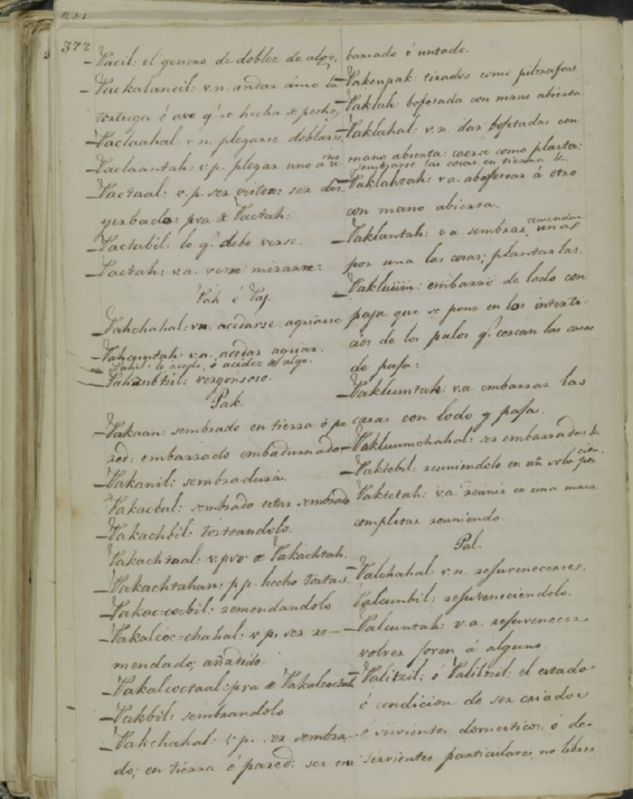 372
Pacil: el genero de doblez de algo.
Packalancil: v.n. andar como la
tortuga ó ave q.e se hecha de pecho
Paclaahal: v.n. plegarse doblarse
Paclaantah: v.p. plegar uno á
Pactaal: v.p. ser visto: ser
yerbado: pva de Pactah:
Pactabil: lo q.e debe verse.
Pactah: v.a. verse mirarse:
Pah ó Paj
Pahchahal: vn. acedarse agriarse
Pahcuntah: v.a. acedar agriar.
Pahil: lo acedo, ó acidez de algo.
Pahzubtzil: vergonsoso.
Pak.
Pakaan: sembrado en tierra ó pa
red: embarrado embadurnado
Pakanil: sembradura.
Pakacbal: sembrado estar sembrado
Pakachbil: torteandolo.
Pakachtaal: v.pvo de Pakachtah.
Pakachtahan: p.p. hecho tortas
Pakac-cocbil: remendandolo
Pakalcoc-chahal: v.p. ser re-
mendado; añadido.
Pakalcoctaal: pva de Pakalcoctah
Pakbil: sembrandolo
Pakchahal: v.p. ser sembra-
do; en tierra ó pared: ser em
barrado ó untado.
Pakenpak: tirados como piltrafas
Paklah bofetada con mano abierta
Paklahal: v.n. dar bofetadas con
mano abierta: caerse como planta:
sembrarse las cosas en tierra &.
Paklahtah: v.a. abofetear á otro
con mano abierta.
Paklantah: v.a. sembrar, remendar unas
por una las cosas; plantarlas.
Pakluum: embarro de lodo con
paja que se pone en los intersti-
cios de los palos q.e cercan las casas
de paja:
Pakluumtah: v.a. embarrar las
casas con lodo y paja.
Pakluumchahal: ser embarradas
Paktebil: reuniendolo en un solo
Paktetah: v.a. reunir en una masa
completar reuniendo.
Pal.
Palchahal: v.n. rejuvenecerse.
Palcunbil: rejuveneciendolo.
Palcuntah: v.a. rejuvenecer
volver joven á alguno.
Palitzil: ó Paliltzil: el estado
ó condicion de ser criados
ó sirvientes domesticos: ó de
sirvientes particulares, no libres.